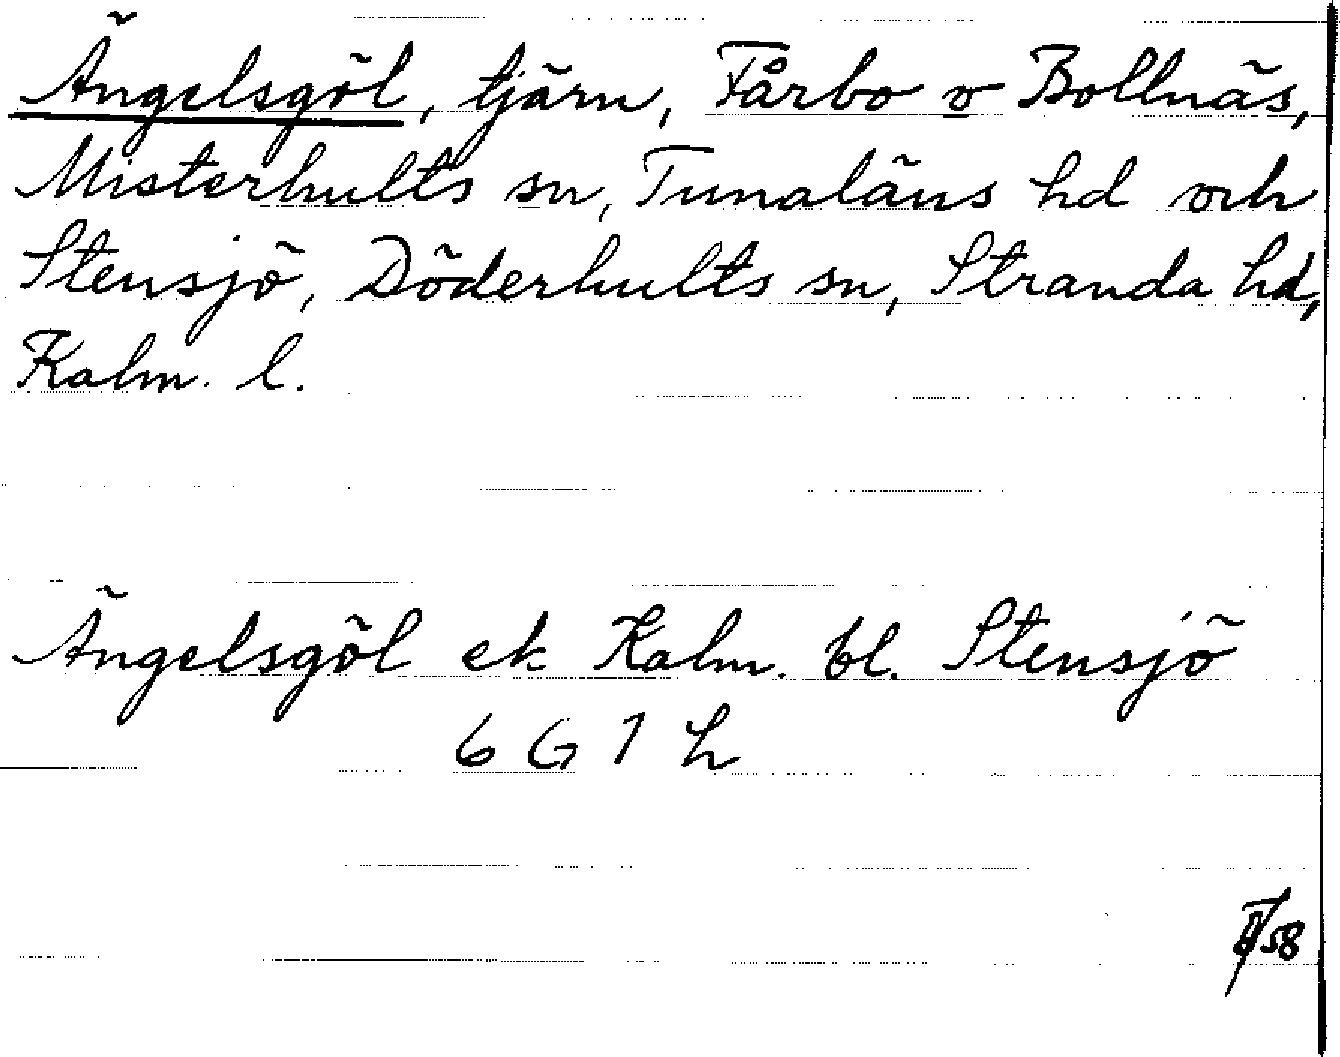 Ängelsgöl, tjärn, Fårbo o Bollnäs,
Misterhults sn, Tunaläns hd och
Stensjö, Döderhults sn, Stranda hd,
Kalm. l.
Ängelsgöl ek Kalm. bl. Stensjö
6 G 7 h
58